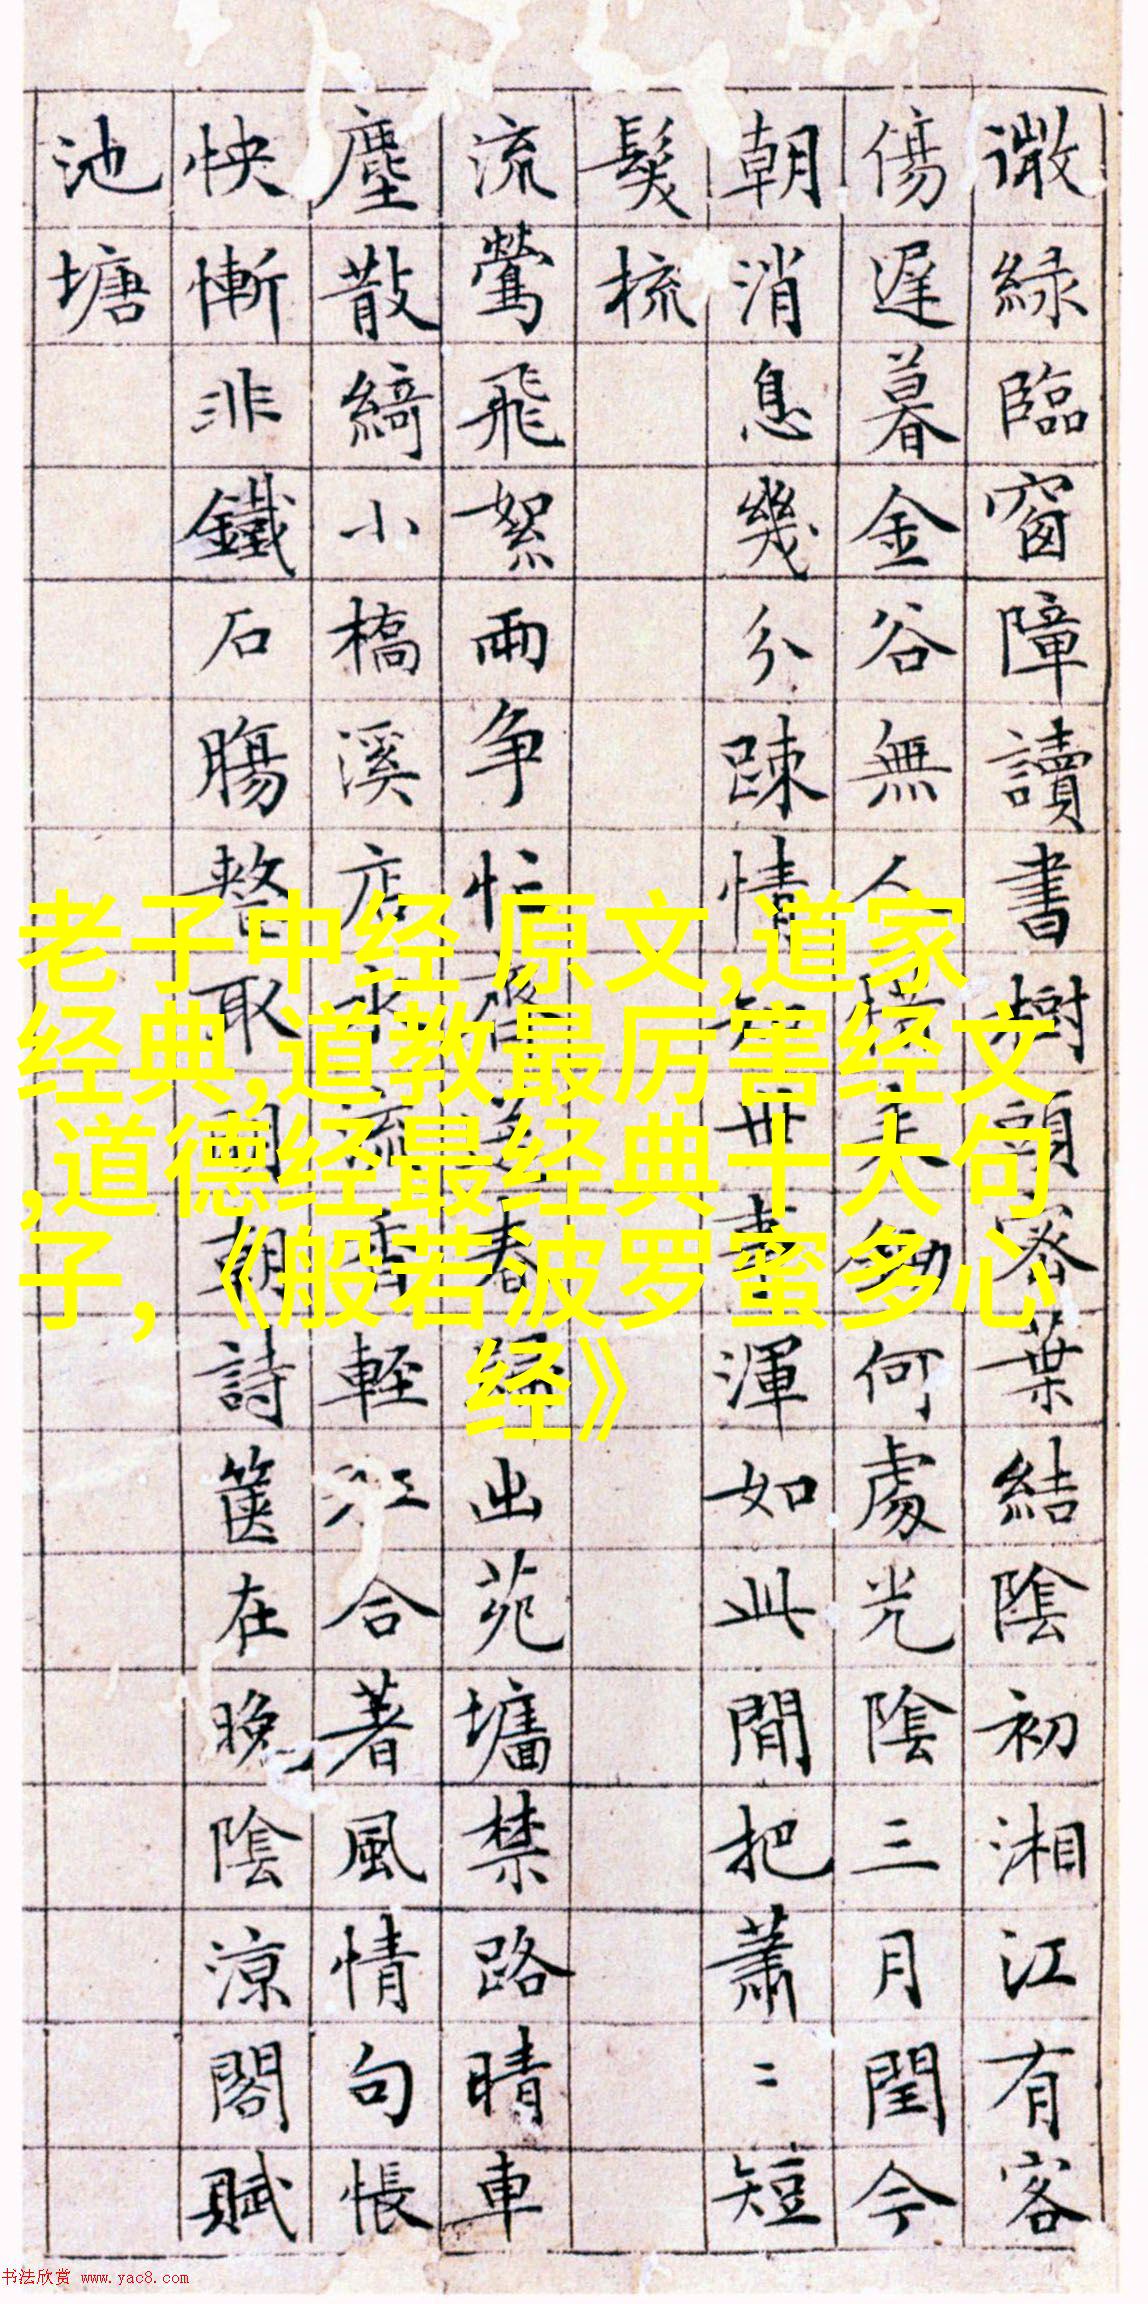 微綠臨窗障讀書樹頭密葉結陰初湘江有客
傷遲暮金谷無人 何處光陰三月閏今
朝消息幾分踈情 渾如此間把蕭〻短
鬓梳
流鶯飛絮兩争忙 春歸出苑墻禁路晴車
塵散綺小橋溪店水流香輕 江合著風情句悵
怏慚非鐵石腸 取 朝詩箧在晚陰涼閣賦
池塘
老子中经 原文,道家
经典,道教最厉害经文
,道德经最经典十大句
子，《般若波罗蜜多心
经》
书法欣赏 www.yac8.com